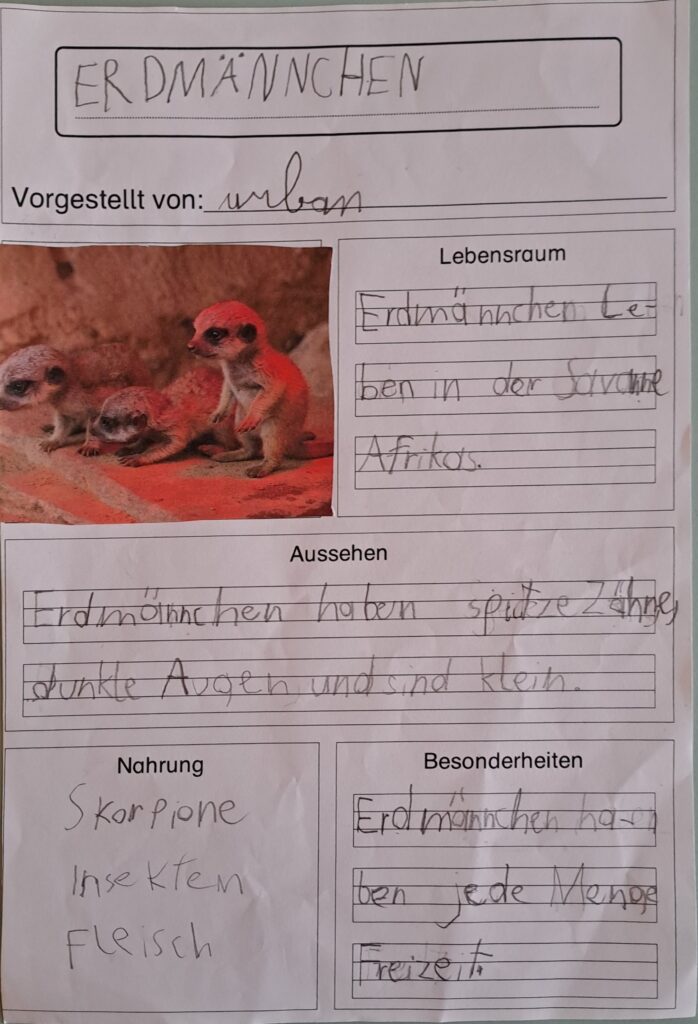 ERDMÄNNCHEN
Vorgestellt von: urban
Lebensraum
Erdmännchen Le-
ben in der Savanne
Afrikas.
Aussehen
Erdmännchen haben spitze Zähne,
dunkle Augen und sind klein.
Nahrung
Skorpione
Insekten
Fleisch
Besonderheiten
Erdmännchen ha-
ben jede Menge
Freizeit.